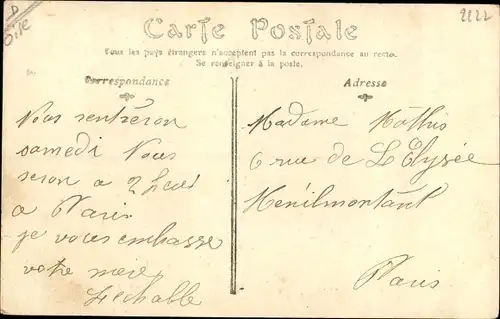 D
Oise
2222
Carte Postale
Tous les pays étrangers n'acceptent pas la correspondance au recto.
Se renseigner à la poste.
Correspondance
Adresse
Nous rentreron
samedi Nous
seron a 2 heures
a Paris
je vous embrasse
votre mere
Madame Mathis
6 rue de L'Elysée
Ménilmontant
Paris